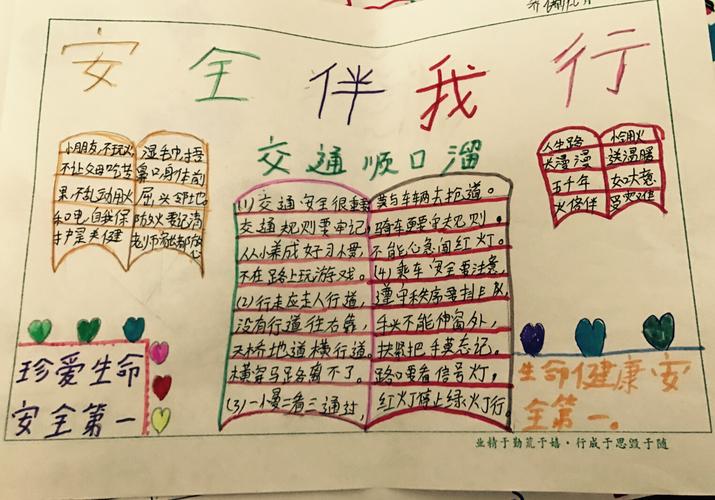 安全伴我行
小朋友,不玩火
不让父母吃苦
果,不乱动用火
和电,自我保
护是关健
湿毛巾,捂
鼻口,身体前
屈
防火要记清
交通顺口溜
(1)交通安全很重
交通规则要牢记,
从小养成好习惯,
不在路上玩游戏。
(2)行走应走人行道,
没有行道往右靠,
天桥地道横行道。
横穿马路离不了。
(3)一慢二看三通过,
莫与车辆去抢道。
骑车更要守规则,
不能心急闯红灯。
(4)乘车安全要注意,
遵守秩序要排队,
手头不能伸窗外,
扶紧把手莫忘记。
路口要看信号灯,
红灯停止绿灯行。
人生路
长漫漫
五千年
火修伴
恰用火
送温暖
如大意
受灾难
珍爱生命
安全第一
生命健康安
全第一。
业精于勤荒于嬉·行成于思毁于随